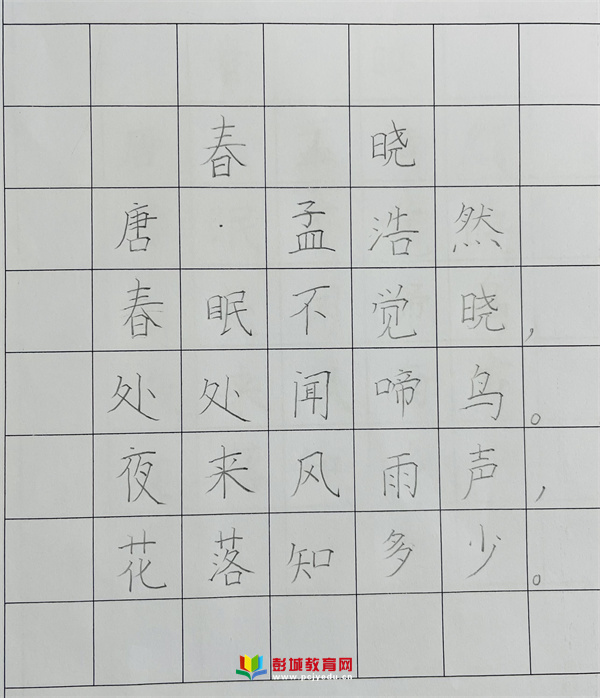 春晓
唐·孟浩然
春眠不觉晓，
处处闻啼鸟。
夜来风雨声，
花落知多少。
彭城教育网
www.pcjyedu.cn